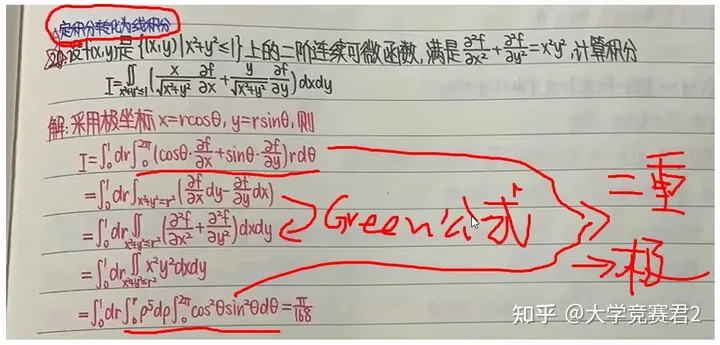 定积分转化为线积分
20.设f(x,y)是{(x,y)|x²+y²≤1}上的二阶连续可微函数,满足∂²f/∂x²+∂²f/∂y²=x²y²,计算积分
I=∬_{x²+y²≤1}(x/√(x²+y²) ∂f/∂x+y/√(x²+y²) ∂f/∂y)dxdy
解:采用极坐标x=rcosθ,y=rsinθ,则
I=∫₀¹dr∫₀^{2π}(cosθ·∂f/∂x+sinθ·∂f/∂y)rdθ
=∫₀¹dr∫_{x²+y²=r²}(∂f/∂x dy-∂f/∂y dx)
=∫₀¹dr∬_{x²+y²≤r²}(∂²f/∂x²+∂²f/∂y²)dxdy
=∫₀¹dr∬_{x²+y²≤r²}x²y²dxdy
=∫₀¹dr∫₀^r ρ⁵dρ∫₀^{2π}cos²θsin²θdθ=π/168
Green公式
二重
→极
知乎 @大学竞赛君2